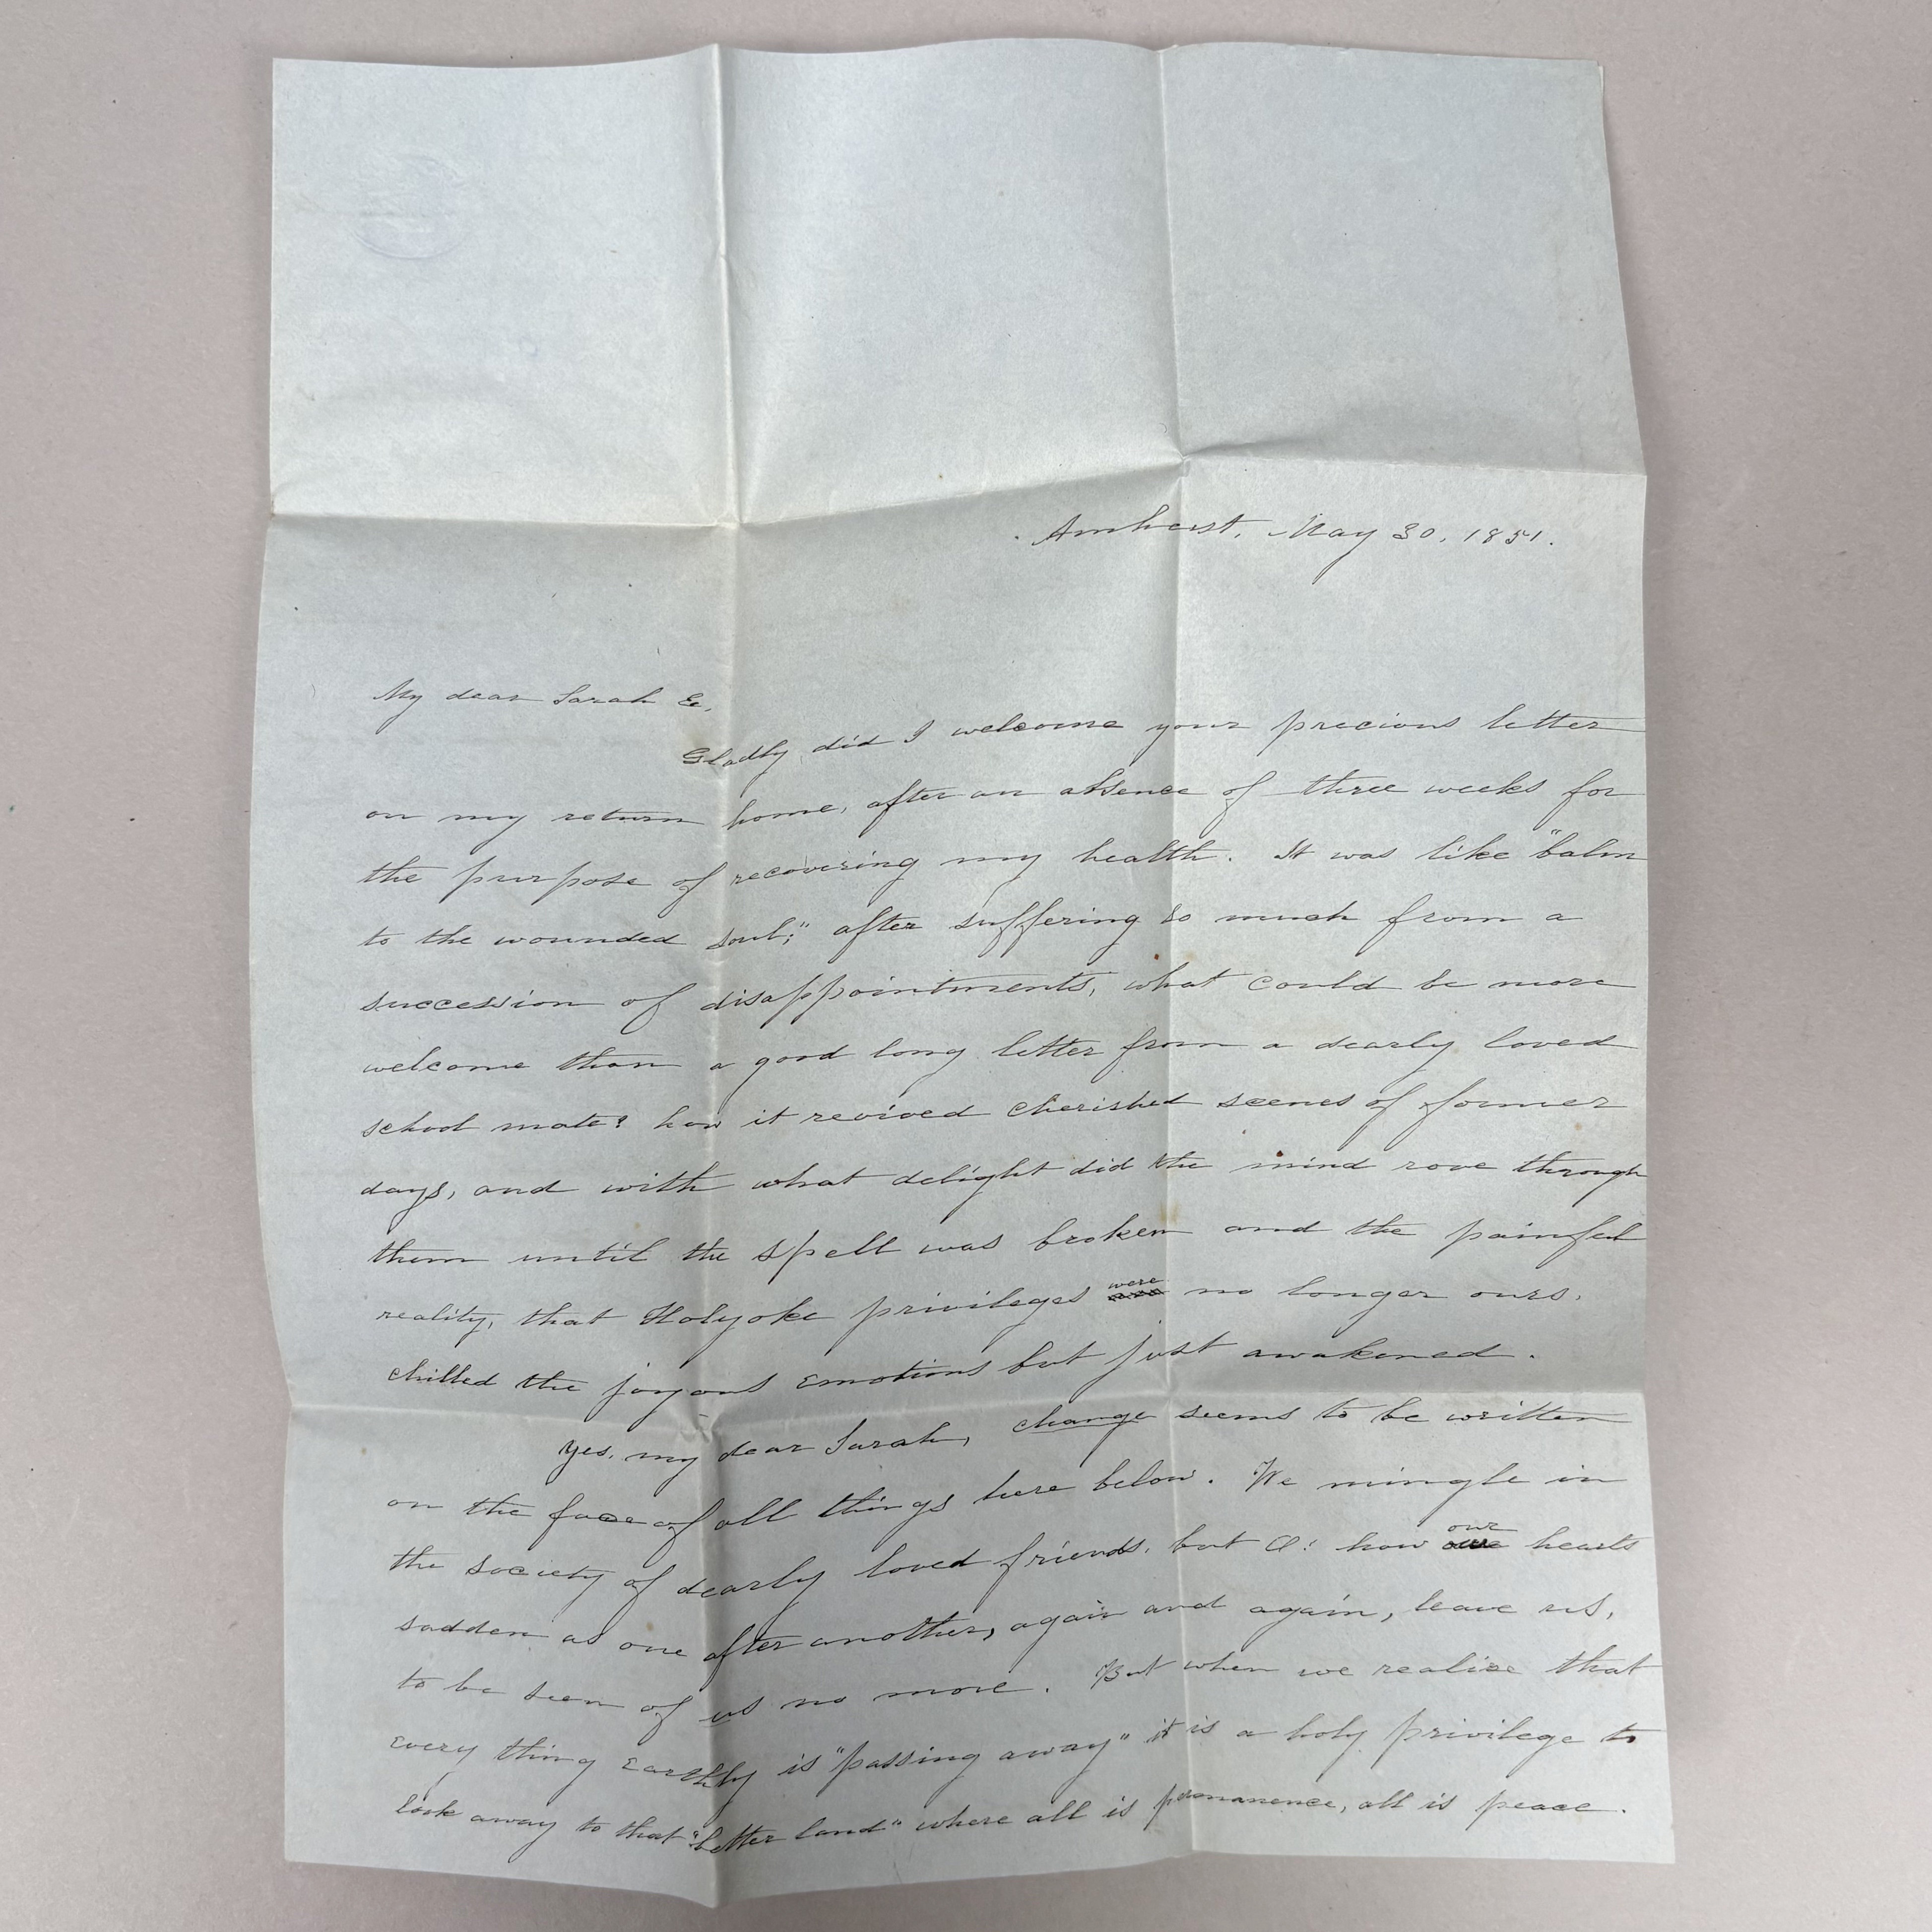 Amherst, May 30, 1851.
My dear Sarah E.,
Gladly did I welcome your precious letter
on my return home, after an absence of three weeks for
the purpose of recovering my health. It was like "balm
to the wounded soul;" after suffering so much from a
succession of disappointments, what could be more
welcome than a good long letter from a dearly loved
school mate? how it revived cherished scenes of former
days, and with what delight did the mind rove through
them until the spell was broken and the painful
reality, that Holyoke privileges were no longer ours,
chilled the joyous emotions but just awakened.
Yes, my dear Sarah, change seems to be written
on the face of all things here below. We mingle in
the society of dearly loved friends, but O! how our hearts
sadden as one after another, again and again, leave us,
to be seen of us no more. But when we realize that
every thing earthly is "passing away" it is a holy privilege to
look away to that "better land" where all is permanence, all is peace.